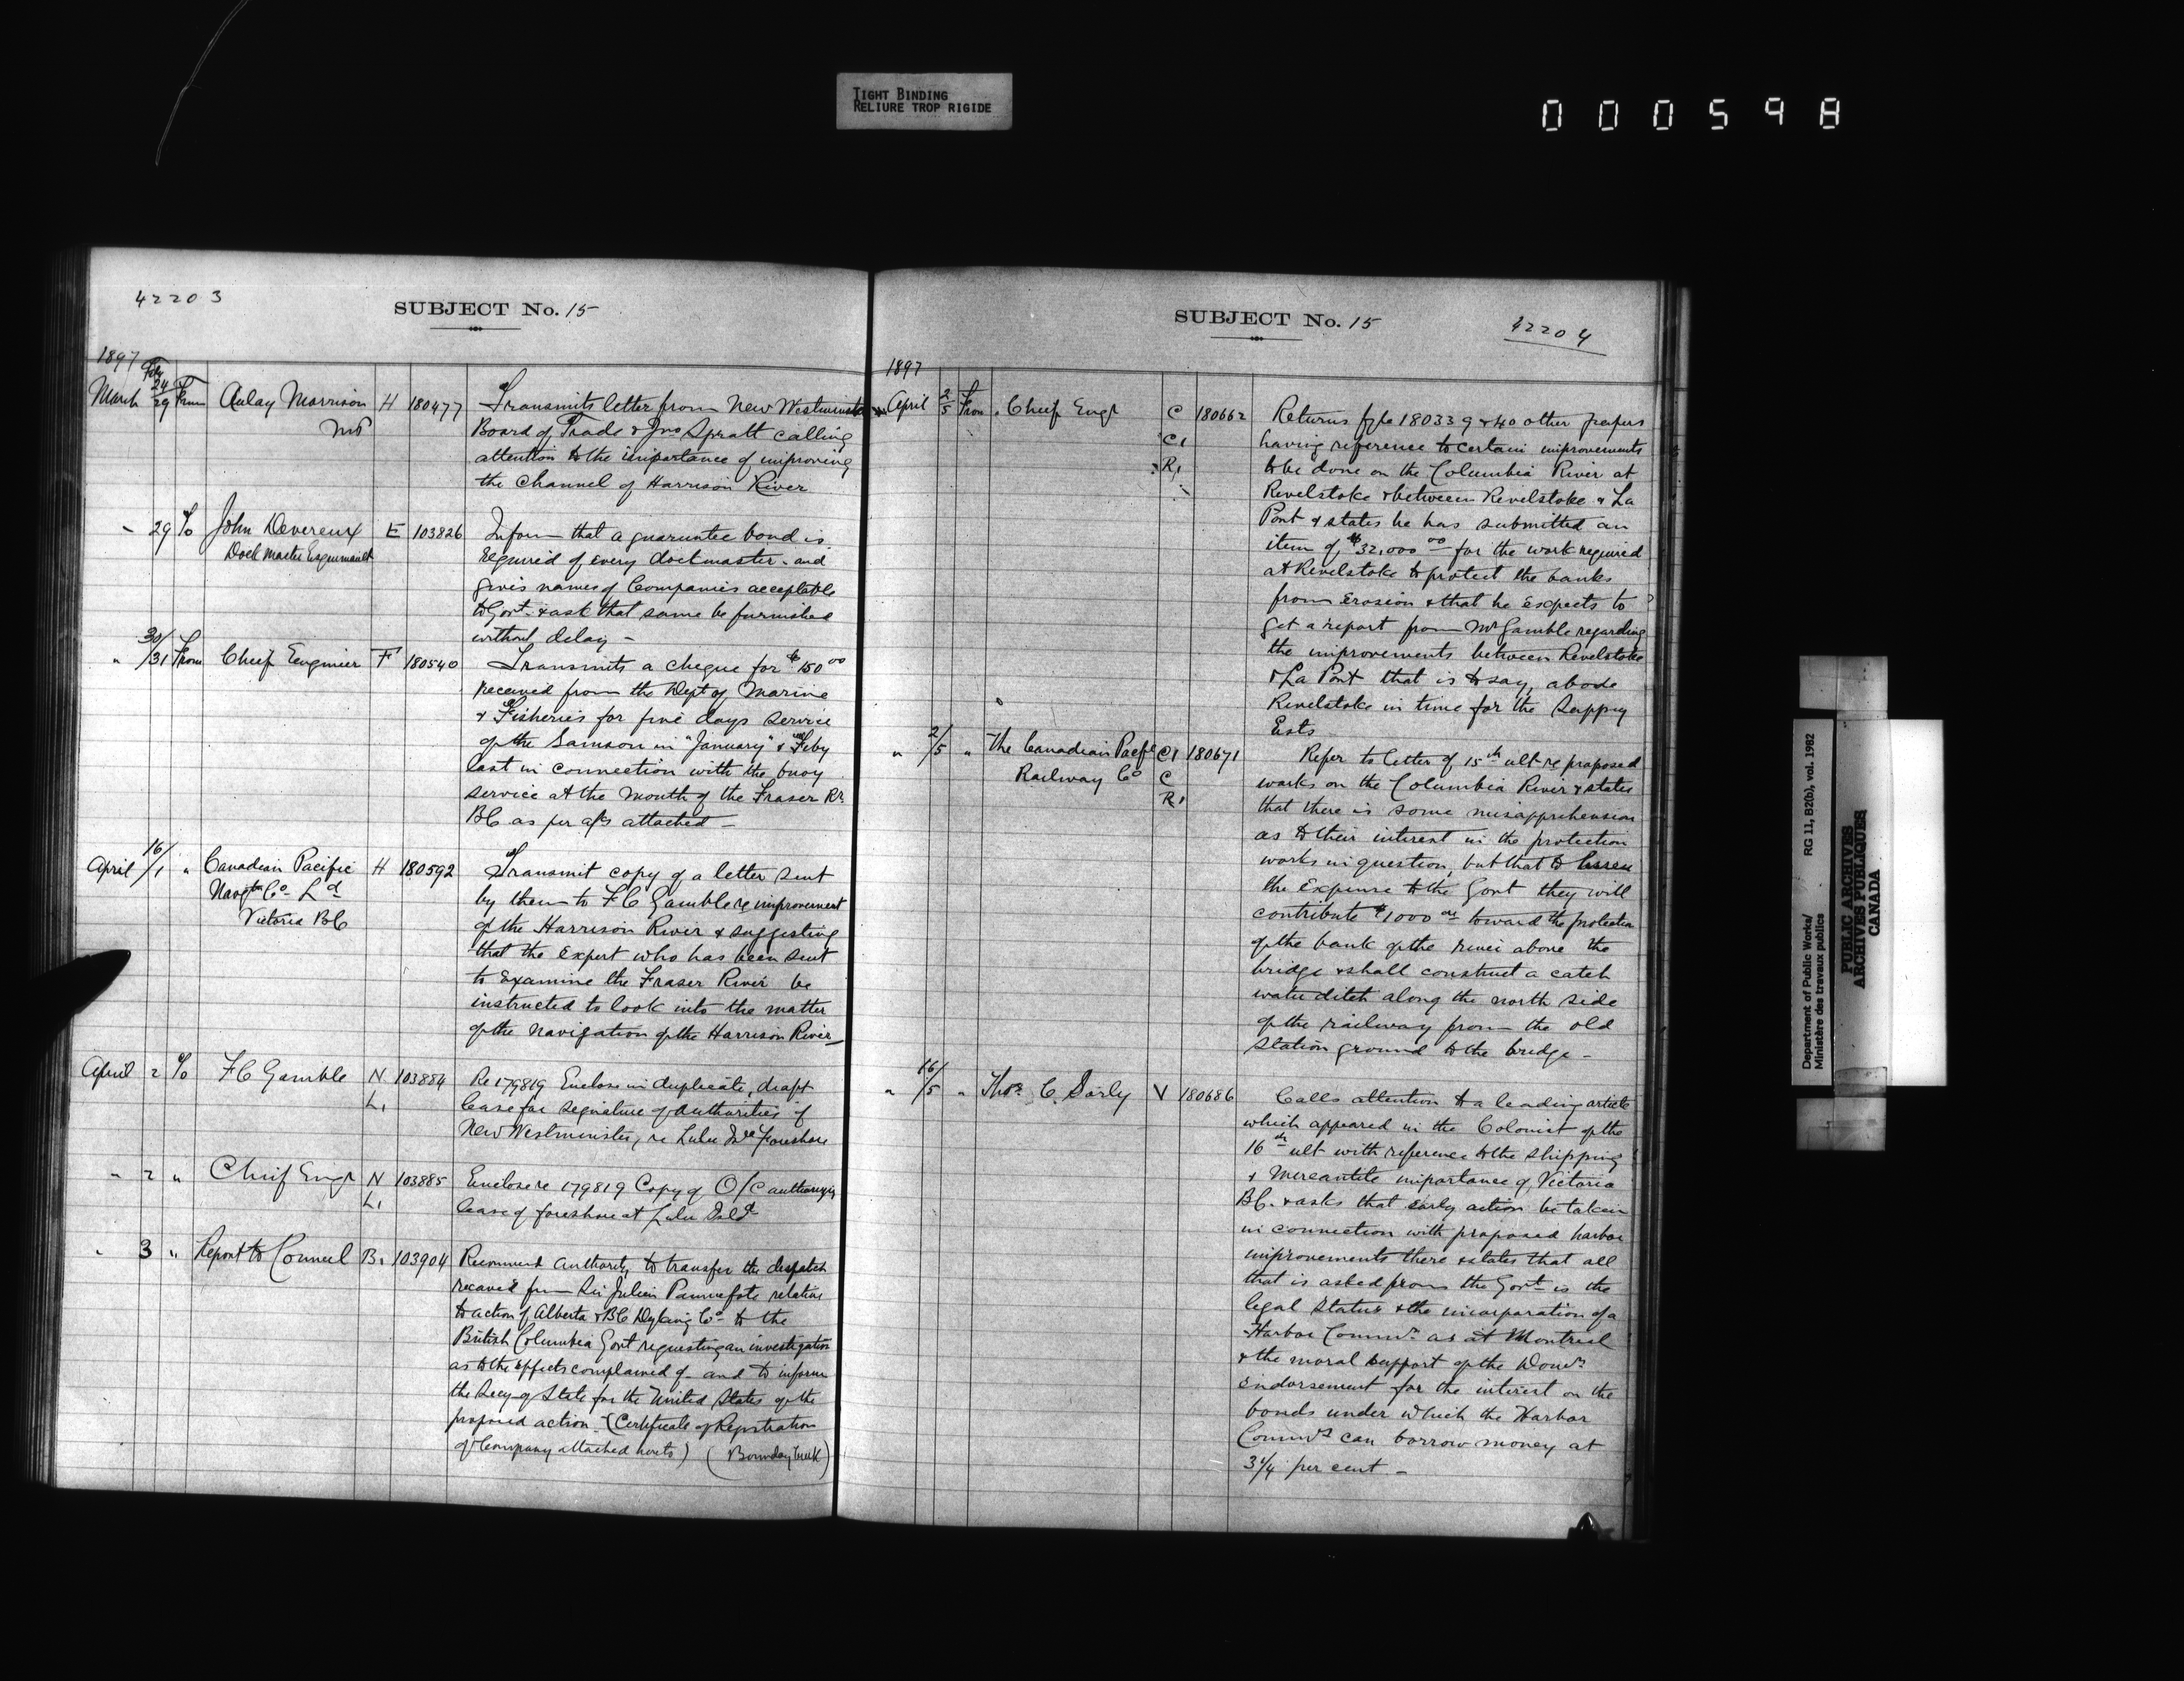 TIGHT BINDING
RELIURE TROP RIGIDE
000598
42203
SUBJECT No. 15
1897
Feby
March 24/29 From Aulay Morrison H 180477 Transmits letter from New Westminster
MP Board of Trade & Jno Spratt calling
attention to the importance of improving
the Channel of Harrison River
" 29 To John Devereux E 103826 Inform that a guaruntee bond is
Dock Master Esquimault required of every dockmaster - and
gives names of Companies acceptable
to Govt. & ask that same be furnished
without delay -
" 30/31 From Chief Engineer F 180540 Transmits a cheque for $150 00
received from the Dept of Marine
& Fisheries for five days service
of the Samson in "January" & Feby
last in connection with the buoy
service at the mouth of the Fraser Rr.
BC as per a/cs attached -
April 16/1 " Canadian Pacific H 180592 Transmit copy of a letter sent
Navgtn Co. Ld by them to FC Gamble re improvement
Victoria BC of the Harrison River & suggesting
that the expert who has been sent
to examine the Fraser River be
instructed to look into the matter
of the navigation of the Harrison River -
April 2 To FC Gamble N 103884 Re 179819 Enclose in duplicate, draft
L1 lease for signature of authorities of
New Westminster, re Lulu Isld foreshore
" 2 " Chief Engr N 103885 Enclose re 179819 Copy of O/C authorizing
L1 lease of foreshore at Lulu Isld
" 3 " Report to Council B1 103904 Recommend authority to transfer the despatch
received from Sir Julien Pauncefote relative
to action of Alberta & BC Dyking Co - to the
British Columbia Govt requesting an investigation
as to the effects complained of - and to inform
the Secy of State for the United States of the
proposed action - (Certificate of Registration
of Company attached hereto) (Boundary Creek)
SUBJECT No. 15
42204
1897
April 2/5 From Chief Engr C 180662 Returns file 180339 & 40 other papers
C1 having reference to certain improvements
R1 to be done on the Columbia River at
Revelstoke & between Revelstoke & La
Port & states he has submitted an
item of $32,000 00 for the work required
at Revelstoke to protect the banks
from erosion & that he expects to
get a report from Mr Gamble regarding
the improvements between Revelstoke
& La Port that is to say, above
Revelstoke in time for the Suppy
Ests
" 2/5 " The Canadian Pacfc C1 180671 Refer to letter of 15th ult re proposed
Railway Co C works on the Columbia River & states
R1 that there is some misapprehension
as to their interest in the protection
works in question, but that to lessen
the expense to the Govt they will
contribute $1000 00 toward the protection
of the bank of the river above the
bridge & shall construct a catch
water ditch along the north side
of the railway from the old
station ground to the bridge -
" 16/5 " Thos. C. Sorly V 180686 Calls attention to a leading article
which appeared in the Colonist of the
16th ult with reference to the shipping
& mercantile importance of Victoria
BC. & asks that early action be taken
in connection with proposed harbor
improvements there & states that all
that is asked from the Govt is the
legal status & the incorporation of a
Harbor Commn. as at Montreal
& the moral support of the Domn.
endorsement for the interest on the
bonds under which the Harbor
Commrs can borrow money at
3 1/4 per cent -
Department of Public Works/ RG 11, B2(b), vol. 1982
Ministère des travaux publics
PUBLIC ARCHIVES
ARCHIVES PUBLIQUES
CANADA